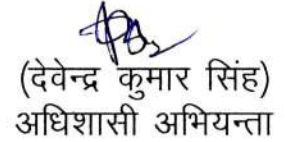 (देवेन्द्र कुमार सिंह)
अधिशासी अभियन्ता